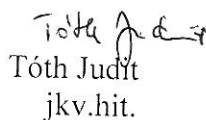 Tóth Judit
Tóth Judit
jkv.hit.